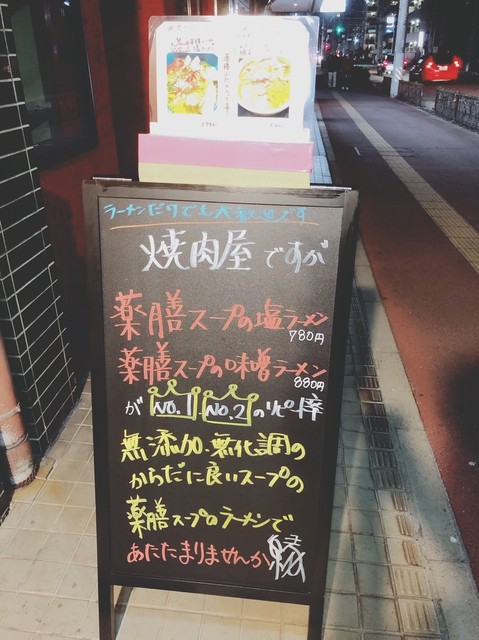 ラーメンだけでも大歓迎です
焼肉屋ですが
薬膳スープの塩ラーメン
780円
薬膳スープの味噌ラーメン
880円
がNo.1 No.2のリピ率
無添加.無化調の
からだに良いスープの
薬膳スープのラーメンで
あたたまりませんか